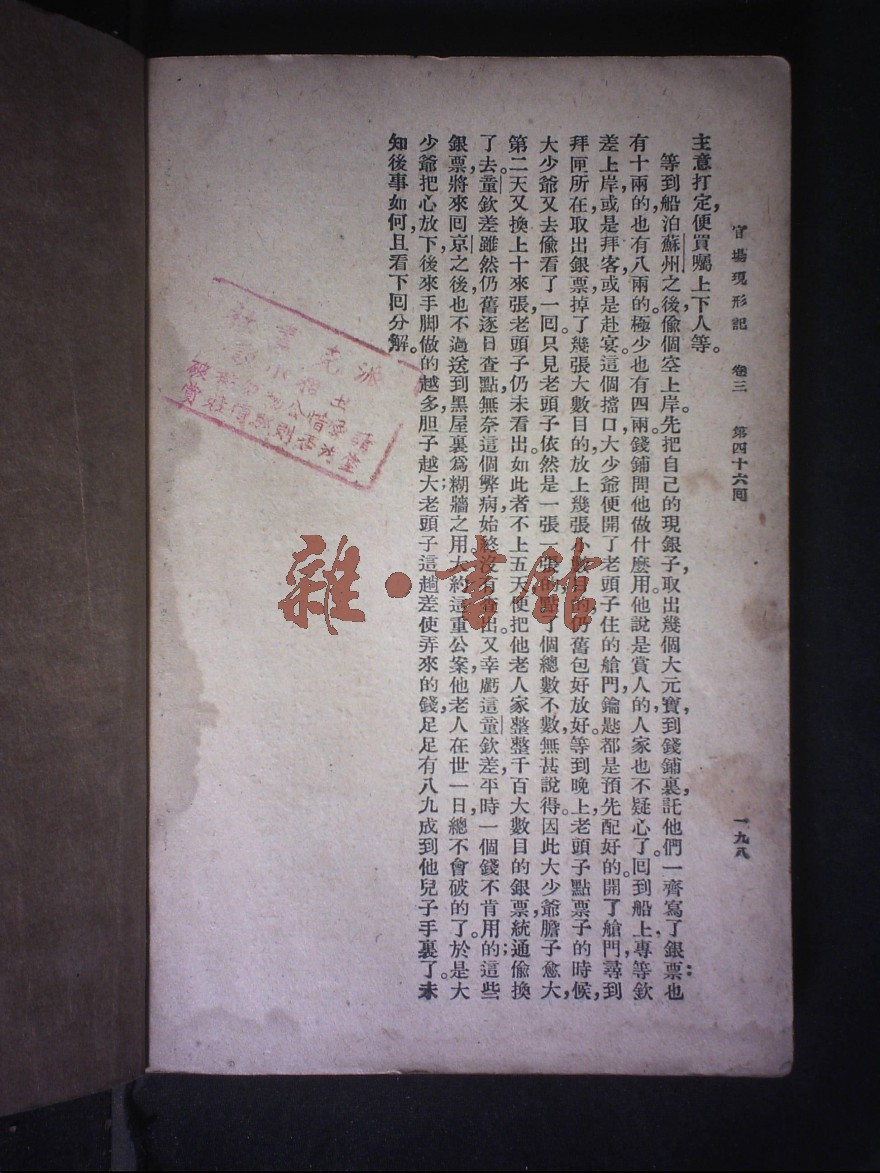 官場現形記 卷三 第四十六囘 一九八
主意打定，便買囑上下人等。
等到船泊蘇州之後，偷個空上岸。先把自己的現銀子，取出幾個大元寶，到錢鋪裏，託他們一齊寫了銀票：也
有十兩的，也有八兩的。極少也有四兩。錢鋪問他做什麼用。他說是賞人的，人家也不疑心了。回到船上，專等欽
差上岸，或是拜客，或是赴宴。這個擋口，大少爺便開了老頭子住的艙門，鑰匙都是預先配好的。開了艙門，尋到
拜匣所在，取出銀票，掉了幾張大數目的，放上幾張小數目的，仍舊包好放好。等到晚上，老頭子點票子的時候，
大少爺又去偷看了一回。只見老頭子依然是一張一張的點了個總數不數，無甚說得。因此大少爺膽子愈大，
第二天又換上十來張，老頭子仍未看出。如此者不上五天，便把他老人家整整千百大數目的銀票，統通偷換
了去。童欽差雖然仍舊逐日查點，無奈這個弊病，始終沒有查出。又幸虧這童欽差，平時一個錢不肯用的；這些
銀票，將來回京之後，也不過送到黑屋裏爲糊牆之用。大約這重公案，他老人在世一日，總不會破的了。於是大
少爺把心放下，後來手脚做的越多，胆子越大；老頭子這趟差使弄來的錢，足足有八九成到他兒子手裏了。未
知後事如何，且看下回分解。
雜·書館